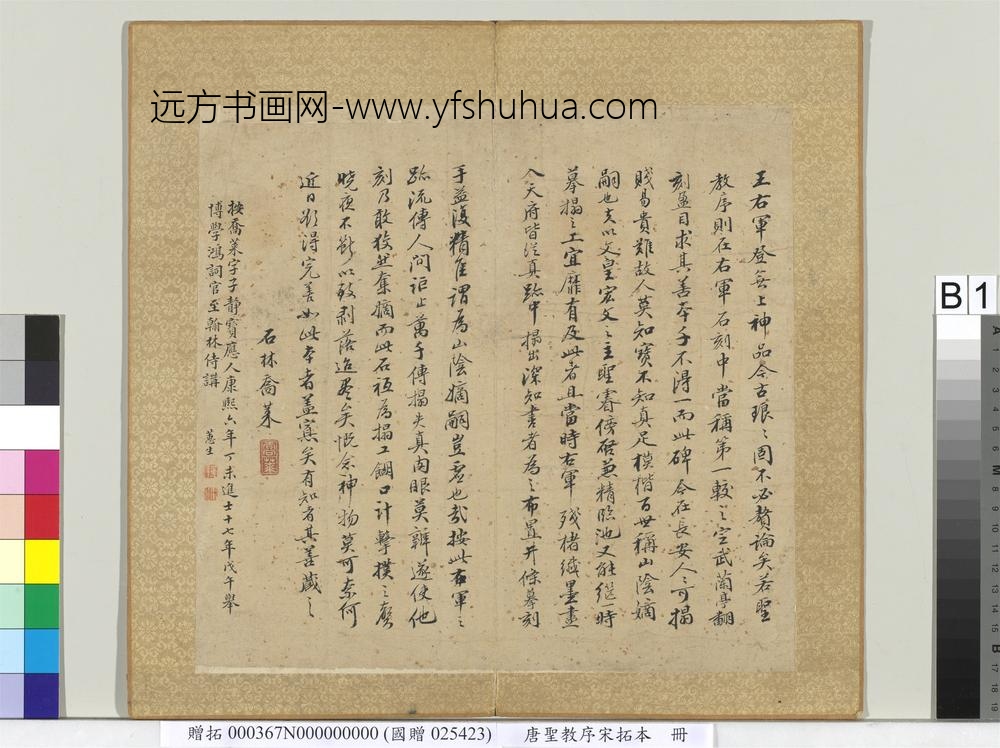 远方书画网-www.yfshuhua.com
王右軍登無上神品今古琅〻固不必贅論矣若聖
教序則在右軍石刻中當稱第一較之定武蘭亭翻
刻盈目求其善本千不得一而此碑今在長安人〻可搨
賤易貴難故人莫知寶不知真足模楷百世稱山陰嫡
嗣也夫以文皇宏文之主聖睿傍啓兼精臨池又能繼一時
摹搨之工宜靡有及此者且當時右軍殘楮緘墨盡
入天府皆從真跡中搨出深知書者為之布置并條摹刻
手益復精隹謂為山陰嫡嗣豈虛也哉按此右軍之
跡流傳人間詎止萬千傳搨失真肉眼莫辨遂使他
刻乃敢狡焉奪嫡而此石祗為搨工餬口計擊撲之聲
曉夜不斷以致剥落迨盡矣慨念神物莫可奈何
近日欲得完善如此本者蓋寡矣有知者其善藏之
石林喬萊
按喬萊字子靜寶應人康熙六年丁未進士十七年戊午舉
博學鴻詞官至翰林侍講
蕙生
B 1
贈拓 000367N000000000 (國贈 025423)
唐聖教序宋拓本 冊